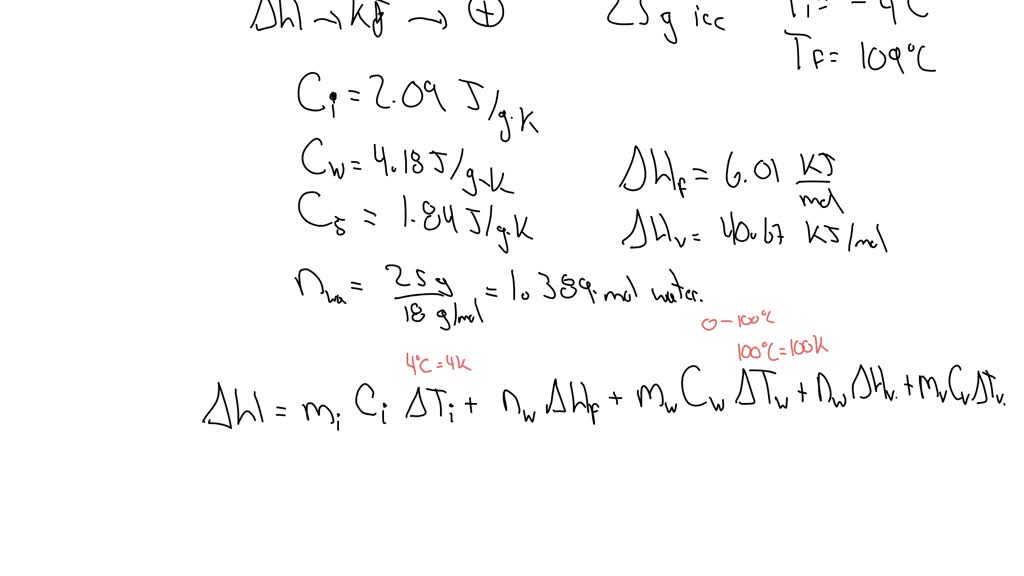 ΔH → KJ → ⊕ 25 g ice Ti = -4°C
TF = 109°C
Ci = 2.09 J/g·K
Cw = 4.18 J/g·K
ΔHf = 6.01 KJ/mol
Cs = 1.84 J/g·K
ΔHv = 40.67 KJ/mol
nwa = 25 g / 18 g/mol = 1.389 mol water.
0 - 100°C
4°C = 4K 100°C = 100K
ΔH = mi Ci ΔTi + nw ΔHf + mw Cw ΔTw + nw ΔHv + mv Cv ΔTv